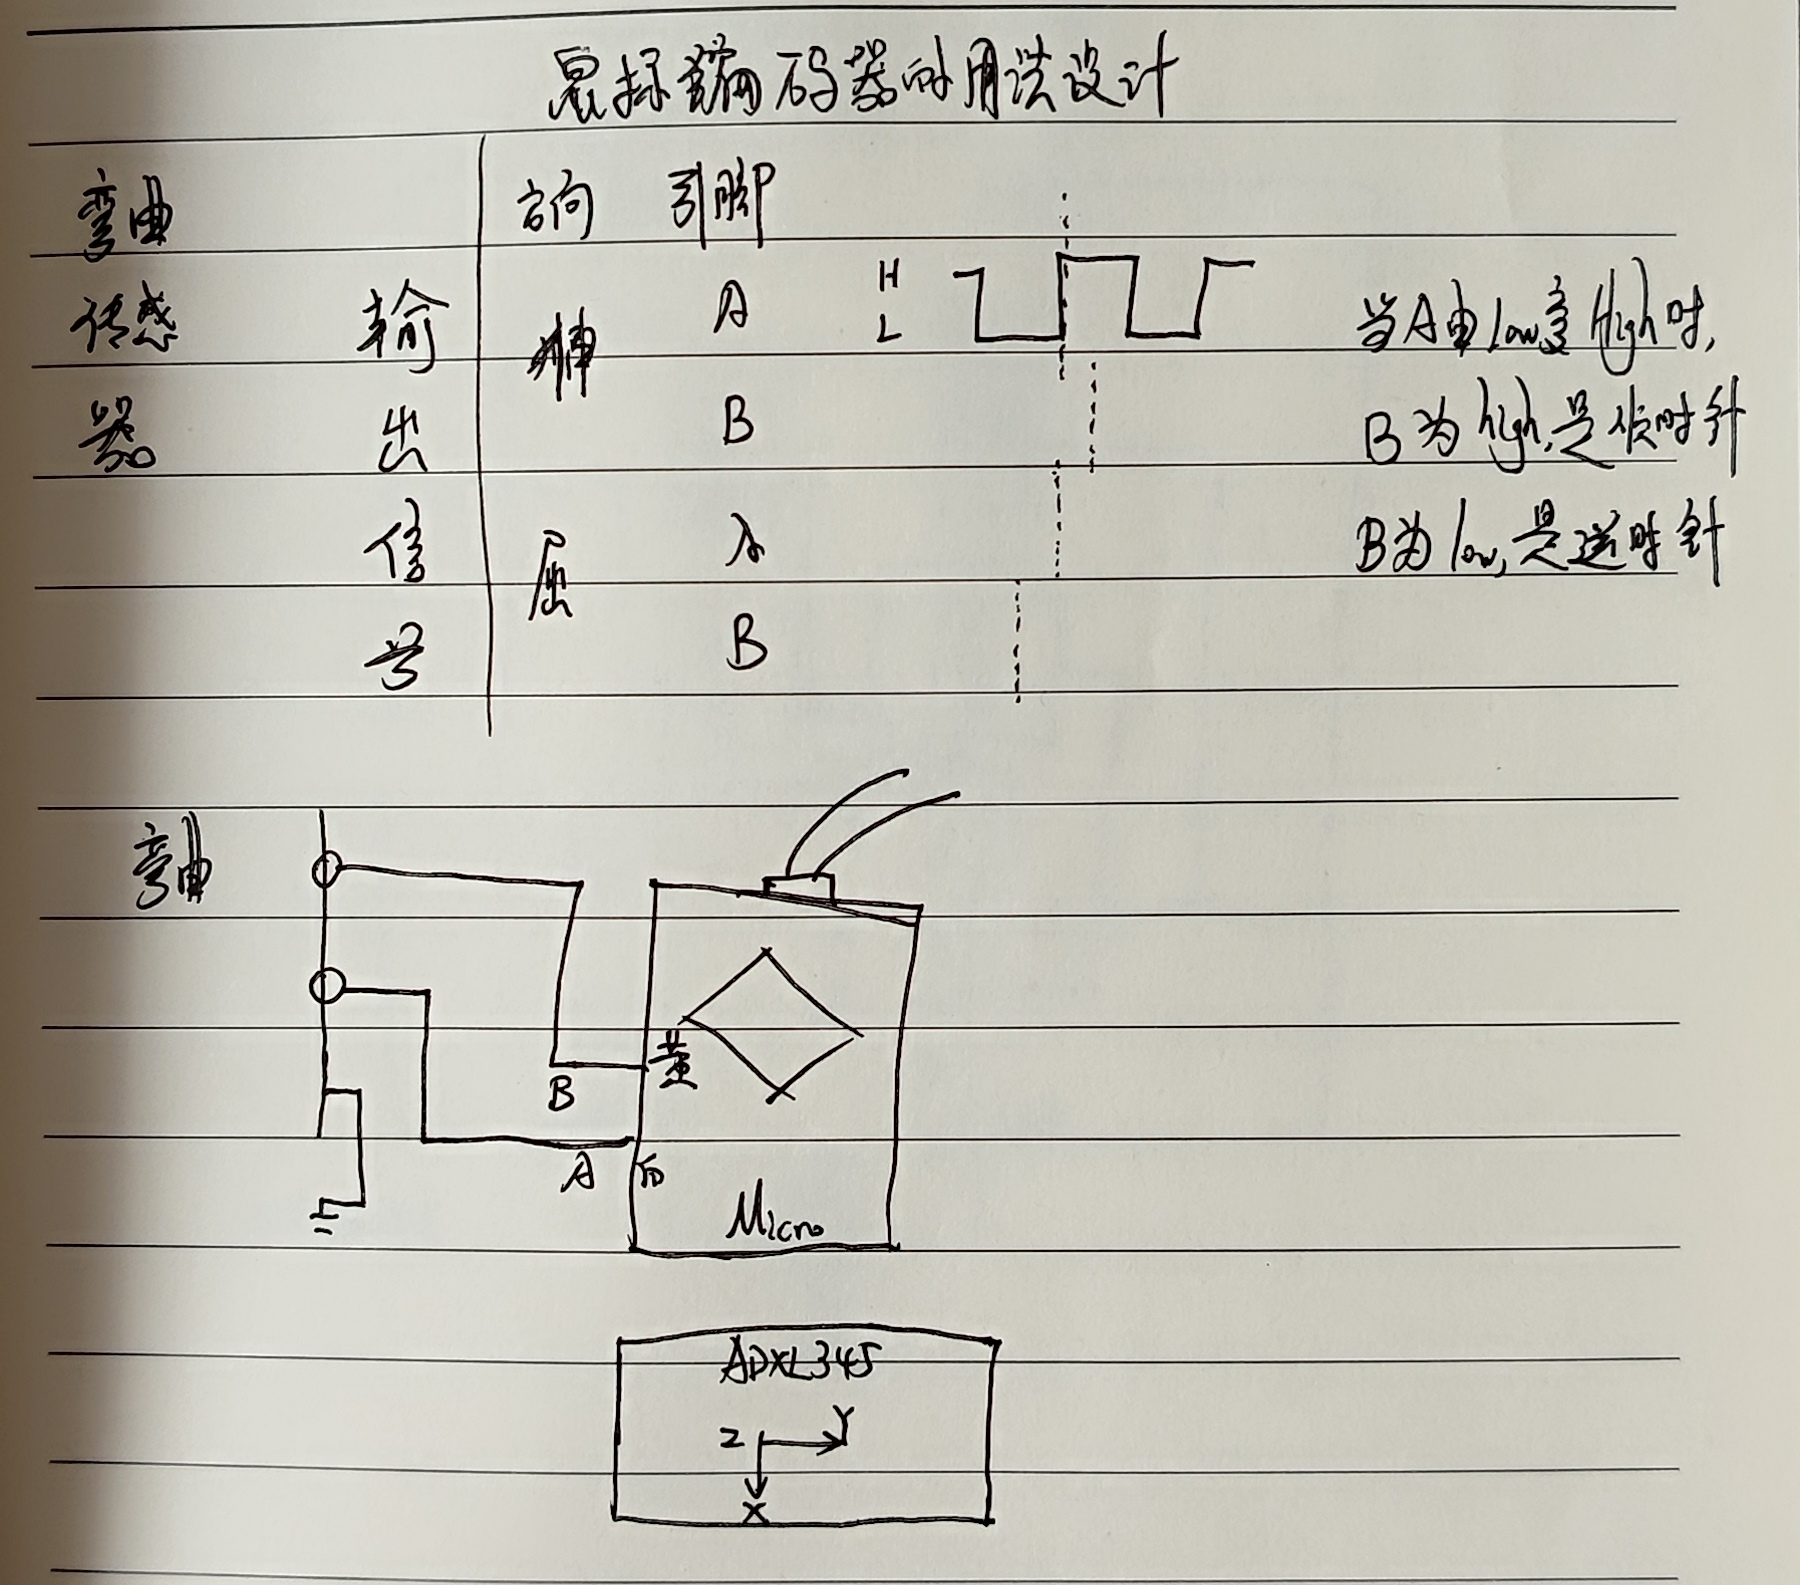 鼠标编码器的用法设计
弯曲
传感
器
输
出
信
号
方向 引脚
伸
A
H
L
B
屈
A
B
当A由low变High时,
B为high,是顺时针
B为low,是逆时针
弯曲
B
黄
A
白
Micro
ADXL345
Z Y
X